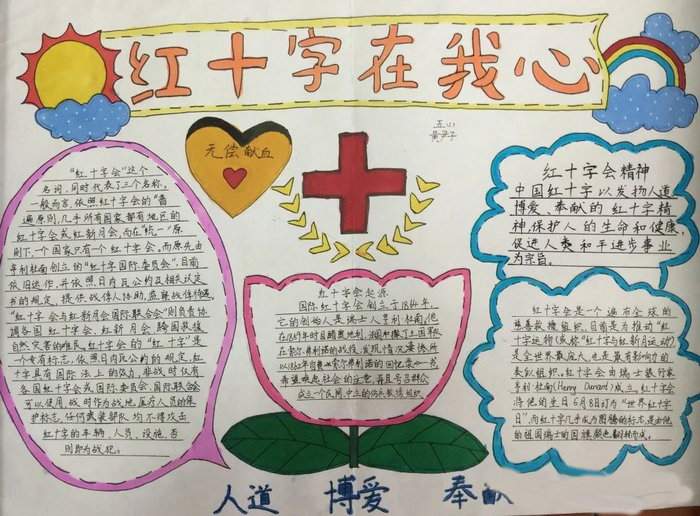 红十字在我心
五小
黄尹子
无偿献血
"红十字会"这个
名词,同时代表了三个名称。
一般而言,依照红十字会的"普
遍原则,几乎所有国家都有地区的
红十字会或红新月会,而在"统一"原
则下,一个国家只有一个红十字会。而原先由
亨利杜南创立的"红十字国际委员会",目前
依旧运作,并依照日内瓦公约及相关议定
书的规定,提供战俘人协助,监察战俘待遇。
"红十字会与红新月会国际联合会"则负责协
调各国红十字会、红新月会跨国救援
自然灾害的难民,红十字会的"红十字"是
一个专有标志,依照日内瓦公约的规定,红
十字具有国际法上的效力,非战时仅有
各国红十字会或国际委员会、国际联合会
可以使用,战时作为战地医疗人员的保
护标志,任何武装部队均不得攻击
红十字的车辆、人员、设施,否
则即为战犯。
红十字会起源
国际红十字会创立于1864年,
它的创始人是瑞士人亨利杜南,他
在1859年时目睹奥地利、法国和撒丁王国军队
在索尔弗利诺的战役,发现情况凄惨,所
以1862年自费出版《索尔弗利诺的回忆录》一书,
希望唤起社会的注意,并且号召群众
成立一个民间、中立的伤兵救援组织
红十字会精神
中国红十字以发扬人道
博爱、奉献的红十字精
神,保护人的生命和健康,
促进人类和平进步事业
为宗旨。
红十字会是一个遍布全球的
慈善救援组织,目前是为推动"红十
字运动(或称"红十字与红新月运动)
是全世界最庞大,也是最有影响力的
类似组织。红十字会由瑞士银行家
亨利·杜南(Henry Dunard)成立,红十字会
将他的生日5月8日订为"世界红十字
日",而红十字几乎成为图腾的标志,是由他
的祖国瑞士的国旗颜色翻转形成。
人道 博爱 奉